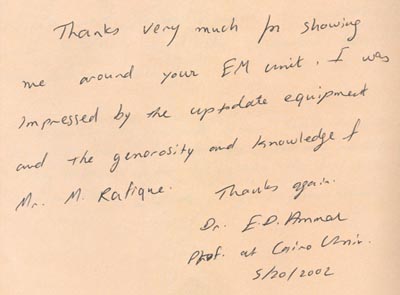 Thanks very much for showing
me around your EM unit. I was
impressed by the uptodate equipment
and the generosity and knowledge of
Mr. M. Rafique.
Thanks again.
Dr. E.D. Ammar
Prof. at Cairo Univ.
5/20/2002